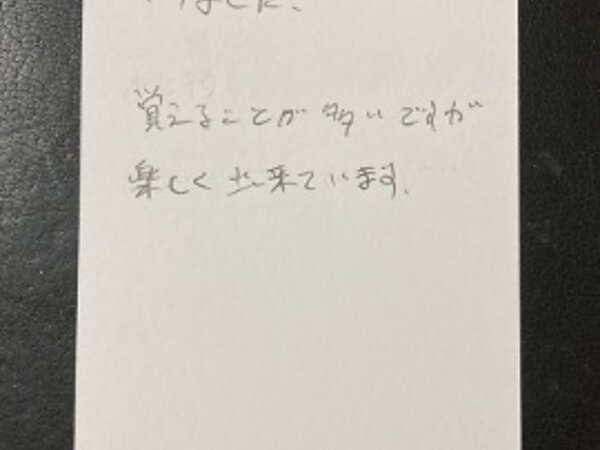 ました。
覚えることが多いですが
楽しく出来ています。